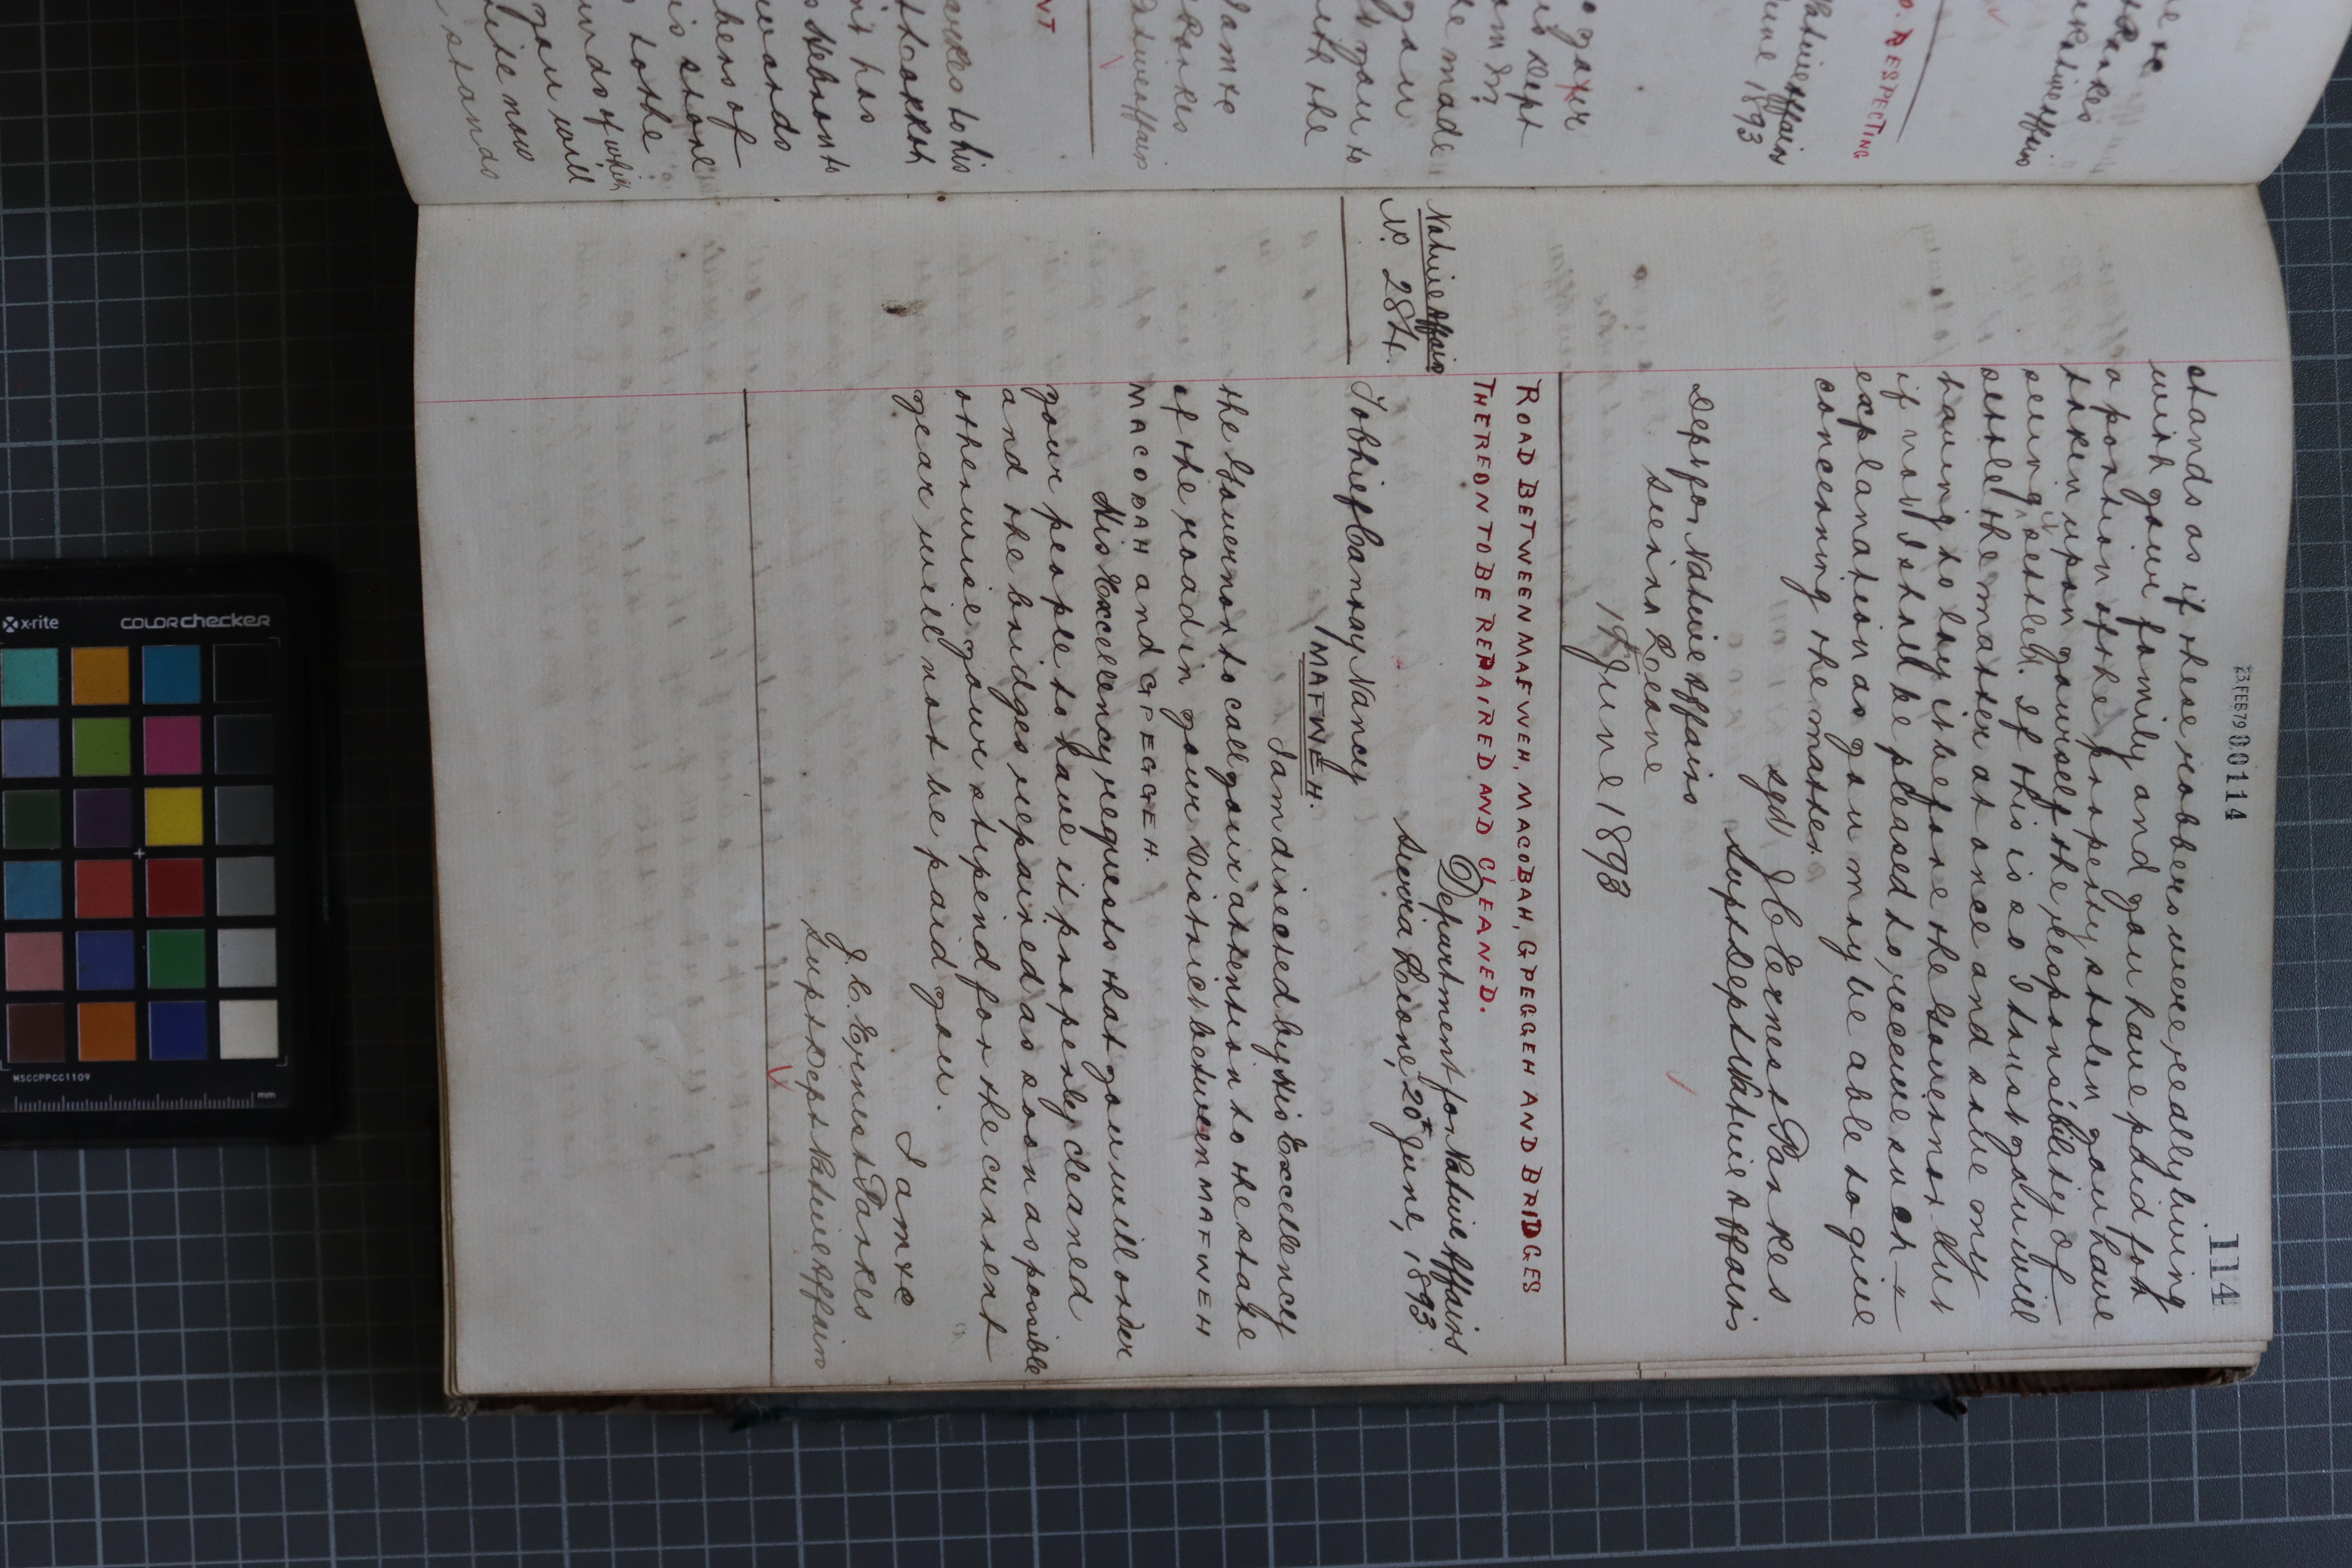 23 FEB 79 00114
114
stands as if these robbers were really living
with your family and you have paid for
a portion of the property stolen you have
taken upon yourself the responsibility of
seing settled. If this is so I trust you will
settle the matter at once and save my
having to lay it before the Governor but
if not I shall be pleased to receive such
explanation as you may be able to give
concerning the matter.
sgd J C Ernest Parkes
Supt Dept Native Affairs
Dep for Native Affairs
Sierra Leone
19th June 1893
ROAD BETWEEN MAFWEH, MACOBAH, GPEGGEH AND BRIDGES
THEREON TO BE REPAIRED AND CLEANED.
Native Affairs
No. 284.
Department for Native Affairs
Sierra Leone, 20th June, 1893
To Chief Canray Nancy
MAFWEH.
I am directed by His Excellency
the Governor to call your attention to the state
of the road in your District between MAFWEH
MACOBAH and GPEGGEH.
His Excellency requests that you will order
your people to have it properly cleaned
and the bridges repaired as soon as possible
otherwise your stipend for the current
year will not be paid you.
I am &c
J. C. Ernest Parkes
Supt Dept Native Affairs
x-rite
colorchecker
MSCCPPCC1109
mm